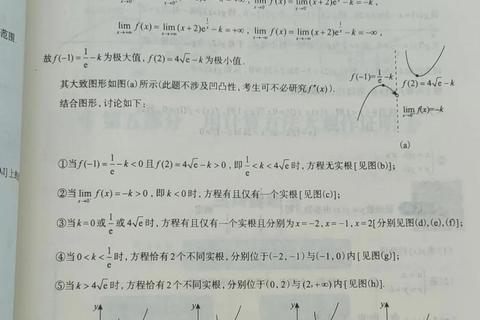 lim f(x)=lim(x+2)e^{1/x}-k=+∞, lim f(x)=lim(x+2)e^{1/x}-k=-∞,
故f(-1)=1/e-k为极大值,f(2)=4√e-k为极小值.
其大致图形如图(a)所示(此题不涉及凹凸性,考生可不必研究f″(x)).
结合图形,讨论如下:
f(-1)=1/e-k
f(2)=4√e-k
lim f(x)=-k
(a)
①当f(-1)=1/e-k<0且f(2)=4√e-k>0,即1/e<k<4√e时,方程无实根[见图(b)];
②当lim f(x)=-k>0,即k<0时,方程有且仅有一个实根[见图(c)];
③当k=0或1/e或4√e时,方程有且仅有一个实根且分别为x=-2,x=-1,x=2[分别见图(d),(e),(f)];
④当0<k<1/e时,方程恰有2个不同实根,分别位于(-2,-1)与(-1,0)内[见图(g)];
⑤当k>4√e时,方程恰有2个不同实根,分别位于(0,2)与(2,+∞)内[见图(h)].
y y y y